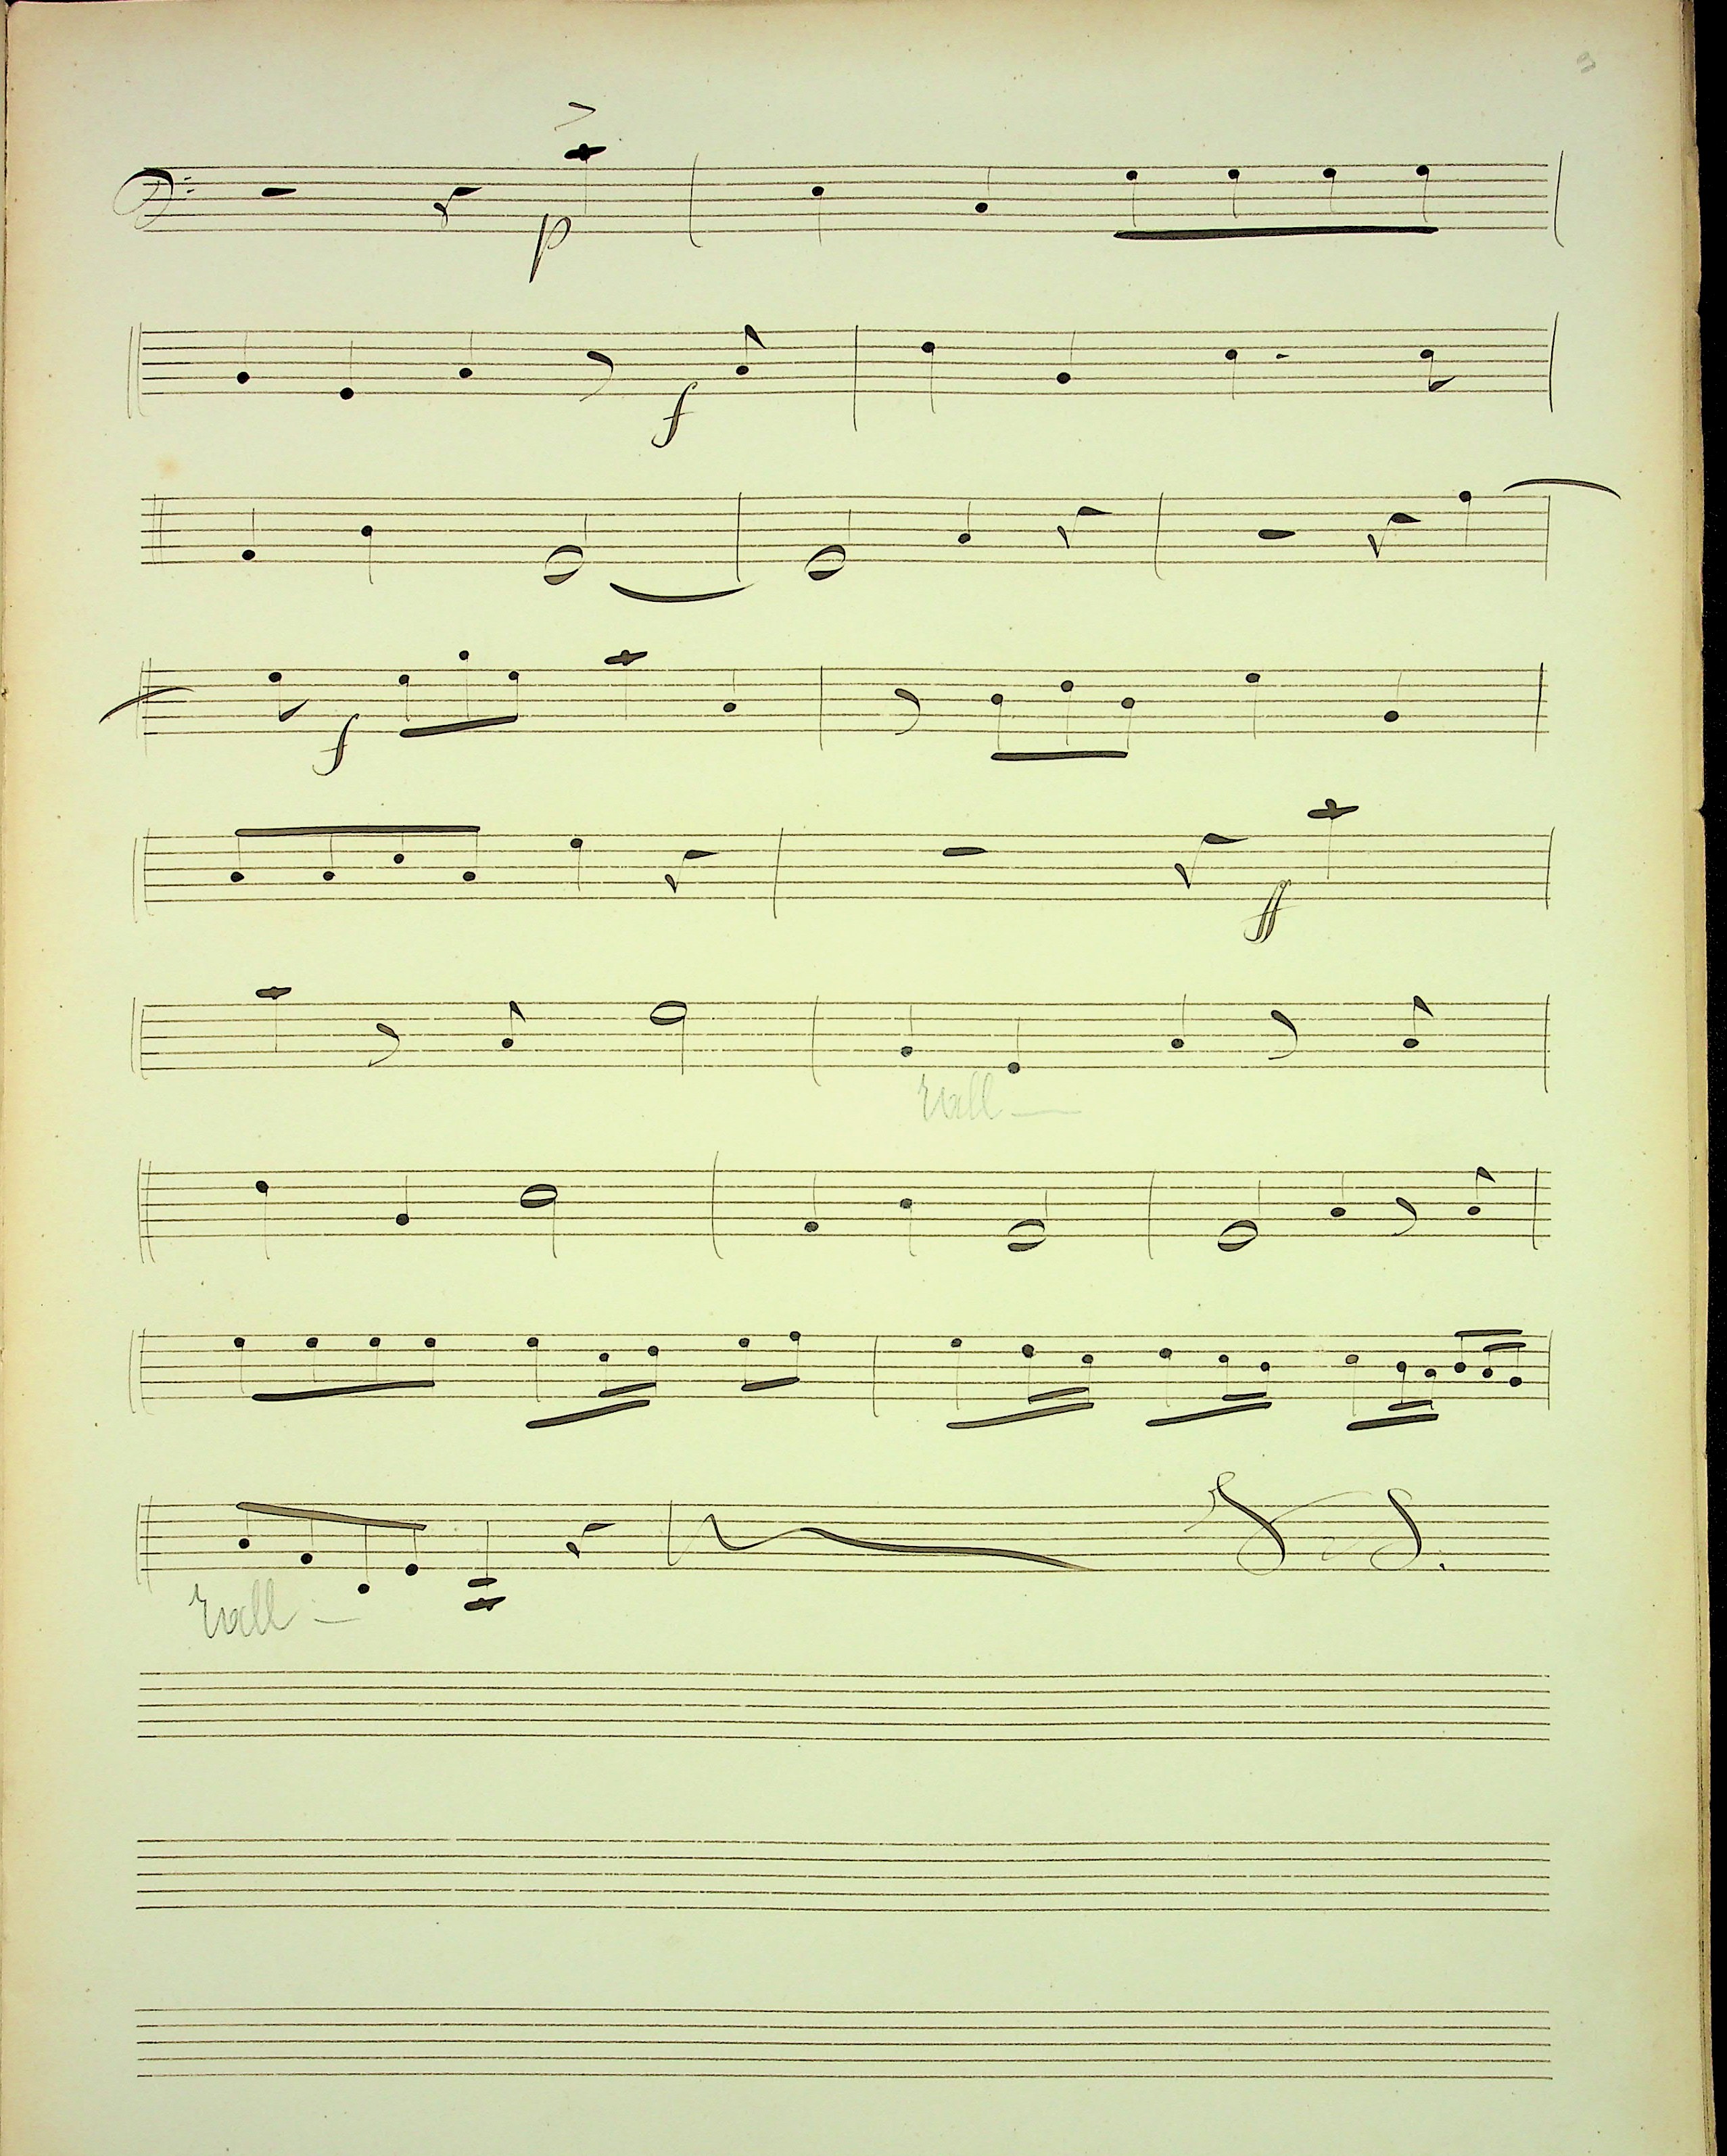 3
p
f
f
ff
rall
rall